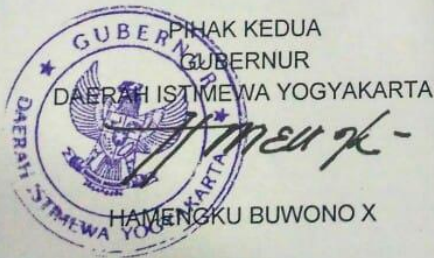 PIHAK KEDUA
GUBERNUR
DAERAH ISTIMEWA YOGYAKARTA
HAMENGKU BUWONO X
GUBERNUR
DAERAH ISTIMEWA YOGYAKARTA